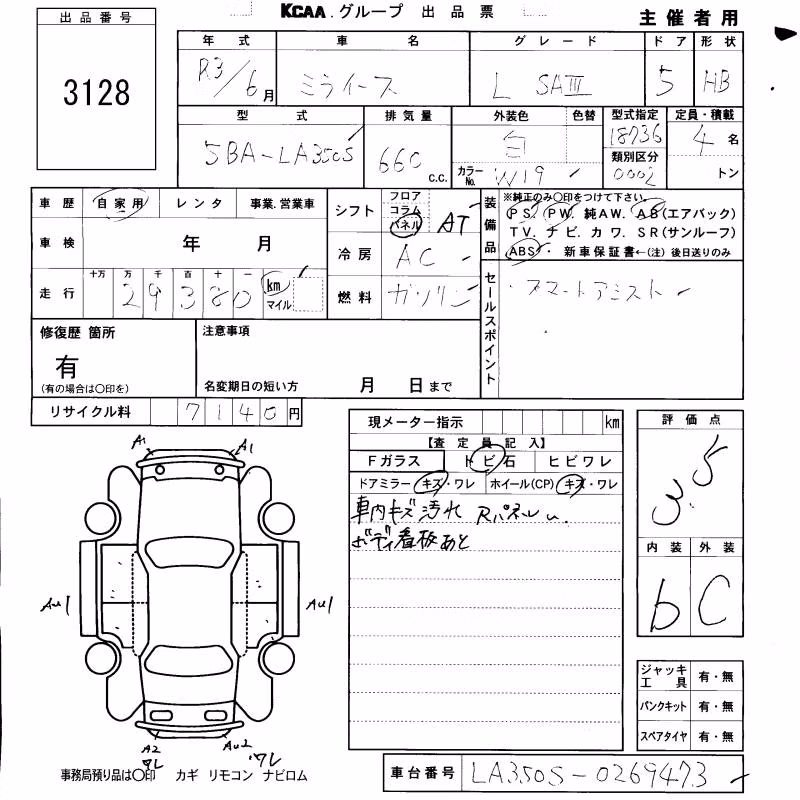 KCAA.グループ 出品票
主催者用
出品番号
3128
年式 車名 グレード ドア 形状
R3/6月 ミライース L SAⅢ 5 HB
型式 排気量 外装色 色替 型式指定 定員・積載
5BA-LA350S 660 c.c. 白 18736 4名
カラーNo. W19 類別区分 0002 トン
車歴 自家用 レンタ 事業.営業車
シフト フロア コラム パネル AT
装備品 ※純正のみ○印をつけて下さい。
PS. PW. 純AW. AB(エアバック)
TV. ナビ. カワ. SR(サンルーフ)
ABS ・ 新車保証書←(注) 後日送りのみ
車検 年 月
冷房 AC
走行 十万 万 千 百 十 一
29380 km マイル
燃料 ガソリン
セールスポイント
・スマートアシスト
修復歴 箇所
有
(有の場合は○印を)
注意事項
名変期日の短い方 月 日まで
リサイクル料 7140円
現メーター指示 km
【査定員記入】
Fガラス トビ石 ヒビワレ
ドアミラー キズ・ワレ ホイール(CP) キズ・ワレ
車内キズ汚れ RパネルU.
ボディ看板あと
評価点
3.5
内装 外装
b C
A1 A1
AU1 AU1
A2 ワレ AU2 ワレ
ジャッキ工具 有・無
パンクキット 有・無
スペアタイヤ 有・無
事務局預り品は○印 カギ リモコン ナビロム
車台番号 LA350S-0269473